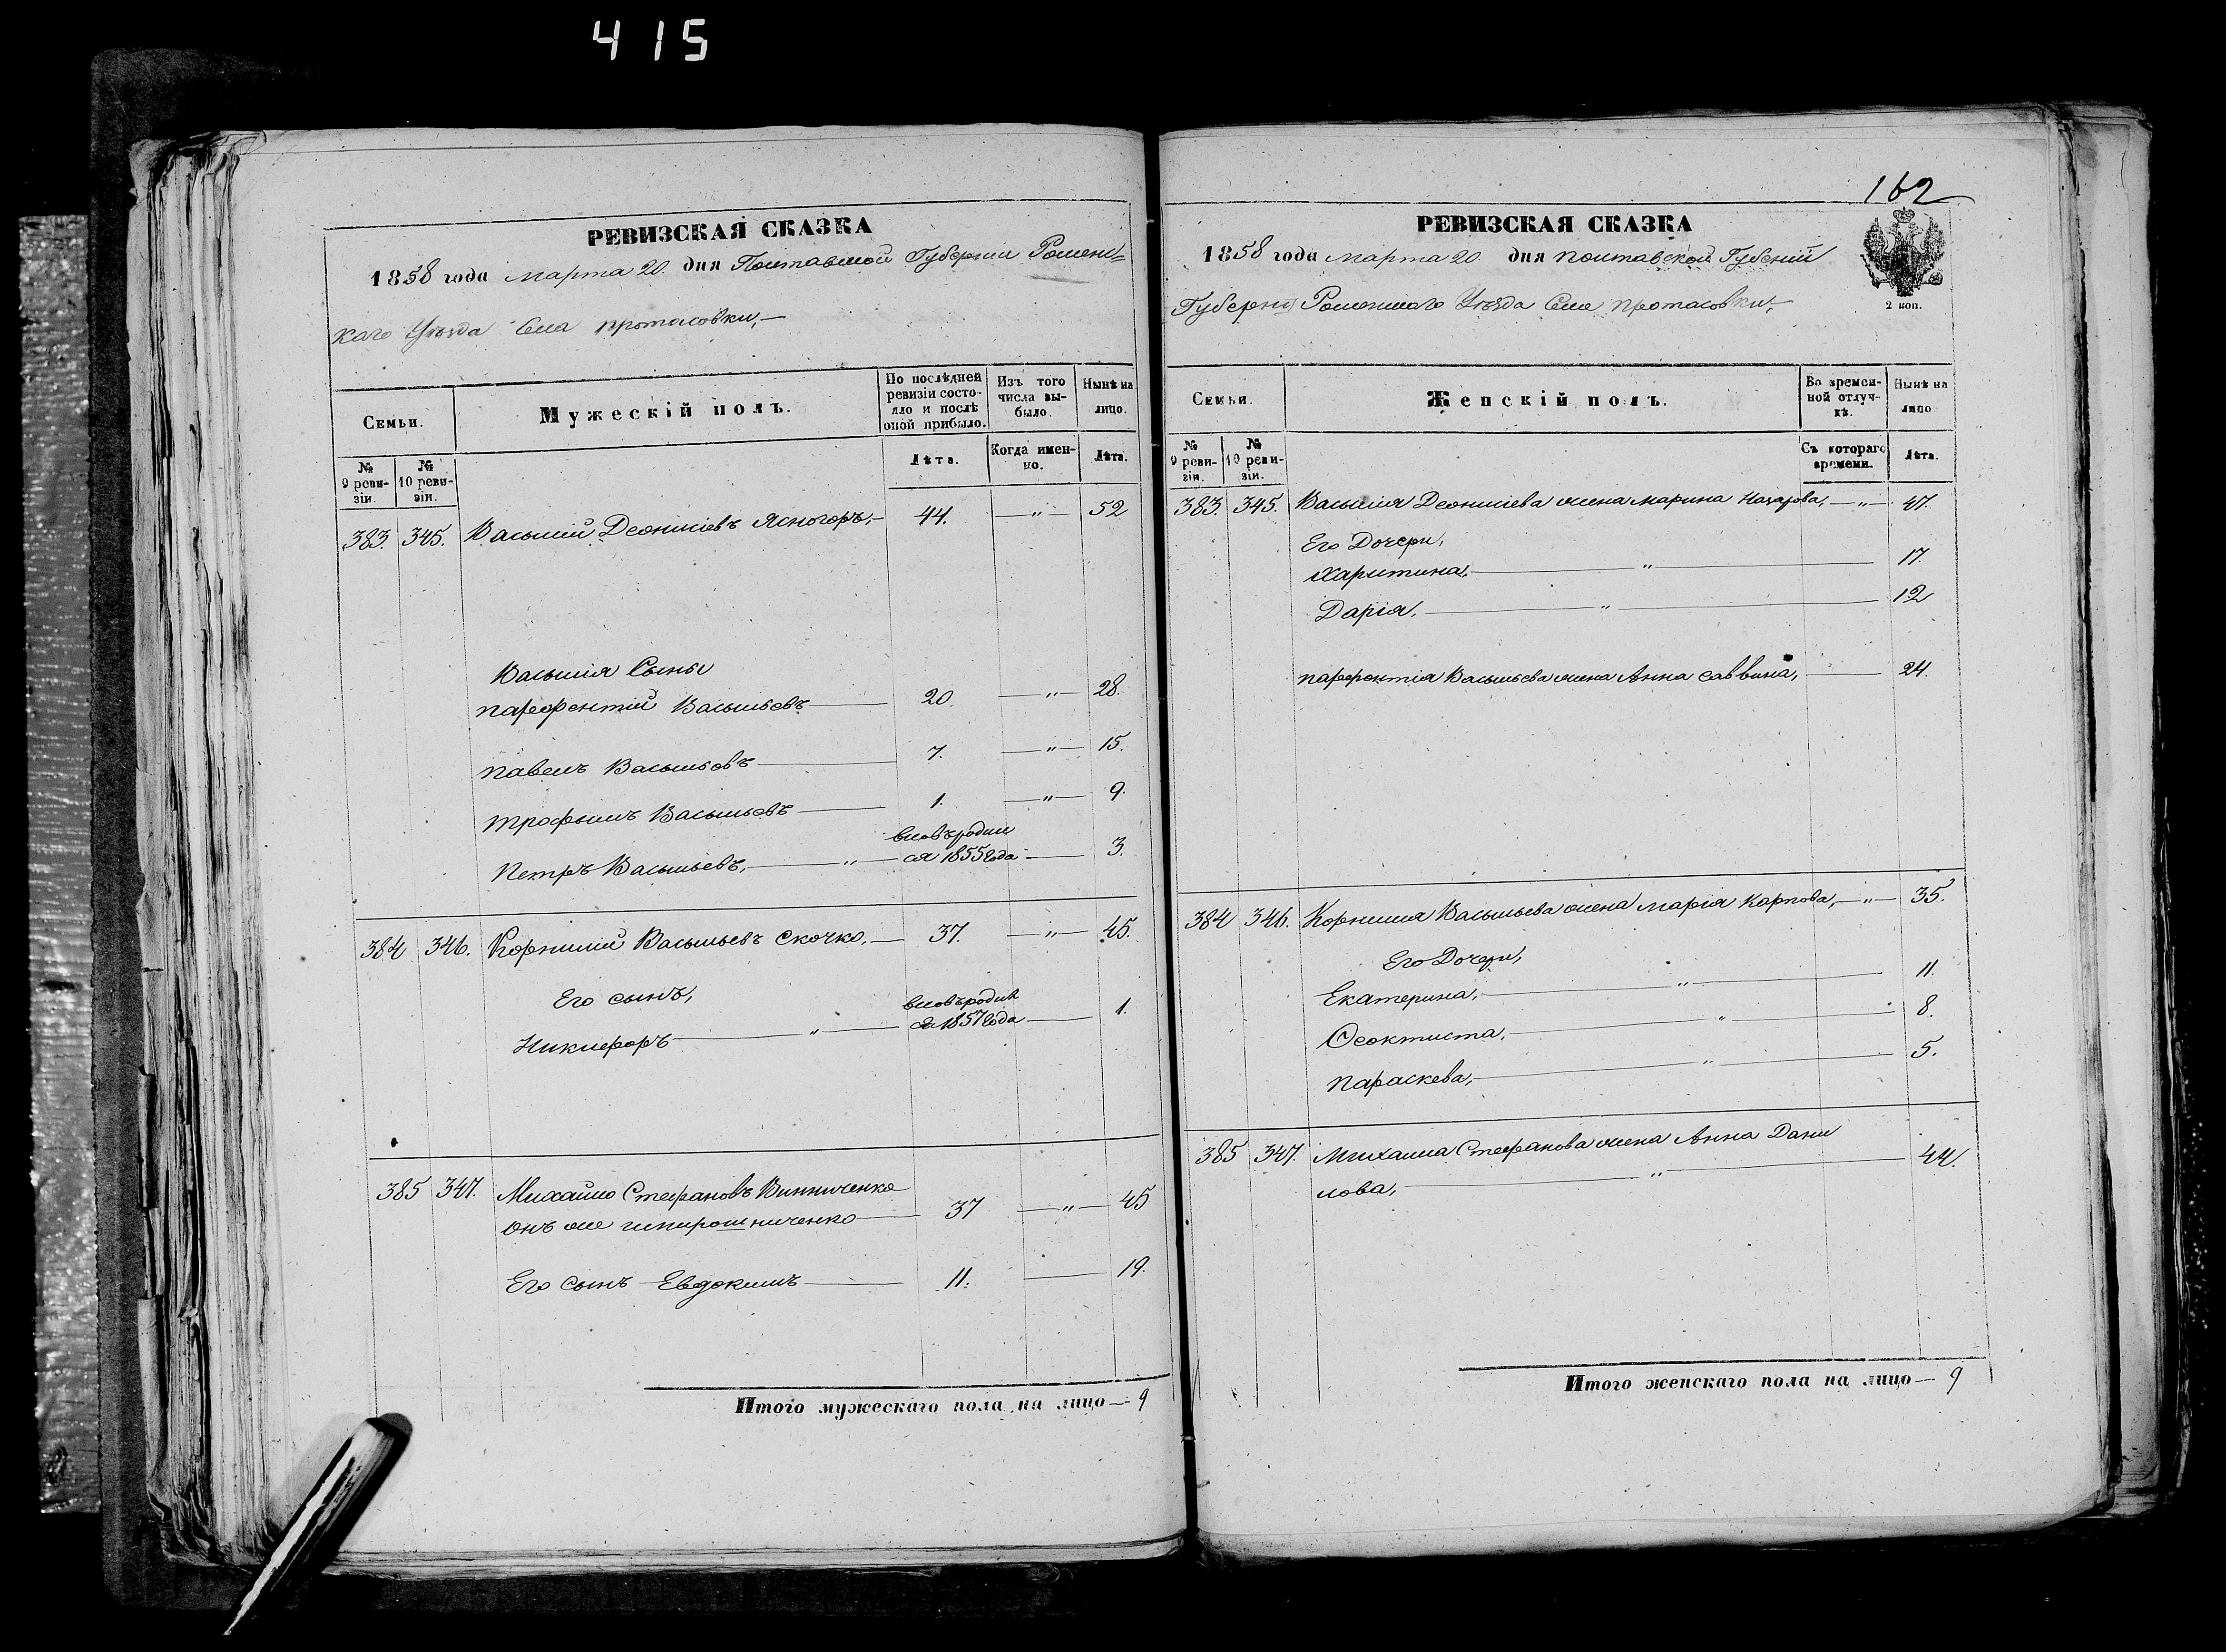 415
РЕВИЗСКАЯ СКАЗКА
1858 года марта 20. дня Полтавской Губернии Ромен-
каго Уѣзда Села протасовки,
Семьи.
Мужескій полъ.
По послѣдней ревизіи состояло и послѣ оной прибыло.
Изъ того числа выбыло.
Нынѣ на лицо.
№ 9 ревизіи.
№ 10 ревизіи.
Лѣта.
Когда именно.
Лѣта.
383. 345. Василий Деонисіевъ Ясногоръ, 44. — " — 52
Василия Сыны
парфентий Васильевъ 20. — " — 28.
павелъ Васильевъ 7. — " — 15.
трофимъ Васильевъ 1. — " — 9.
Петръ Васильевъ, — " — вновь родил
ся 1855 года — 3.
384 346. Корнилий Васильевъ Скочко. — 37. — " — 45.
Его сынъ,
Никифоръ — " — вновь родил
ся 1857 года — 1.
385 347. Михайло Стефановъ Винниченко
онъ же 37 — " — 45
Его сынъ Евдокимъ — 11. — 19.
Итого мужескаго пола на лицо — 9
162
РЕВИЗСКАЯ СКАЗКА
1858 года марта 20. дня полтавской Губерній
Губерни Роменскаго Уѣзда Села протасовки,
2 коп.
Семьи.
Женскій полъ.
Во временной отлучкѣ.
Нынѣ на лицо
№ 9 ревизіи.
№ 10 ревизіи.
Съ котораго времени.
Лѣта.
383. 345. Василия Деонисіева жена марина Назарова, — " — 47.
Его Дочери,
Харитина, — " — 17.
Дарія, — " — 12
парфентія Васильева жена Анна саввина, — 24.
384 346. Корнилия Васильева жена марія карпова, — " — 35.
Его Дочери,
Екатерина, — " — 11.
Ѳеоктиста, — " — 8.
параскева, — " — 5.
385 347. Михаила Стефанова жена Анна Дани
лова, — " — 44.
Итого женскаго пола на лицо — 9